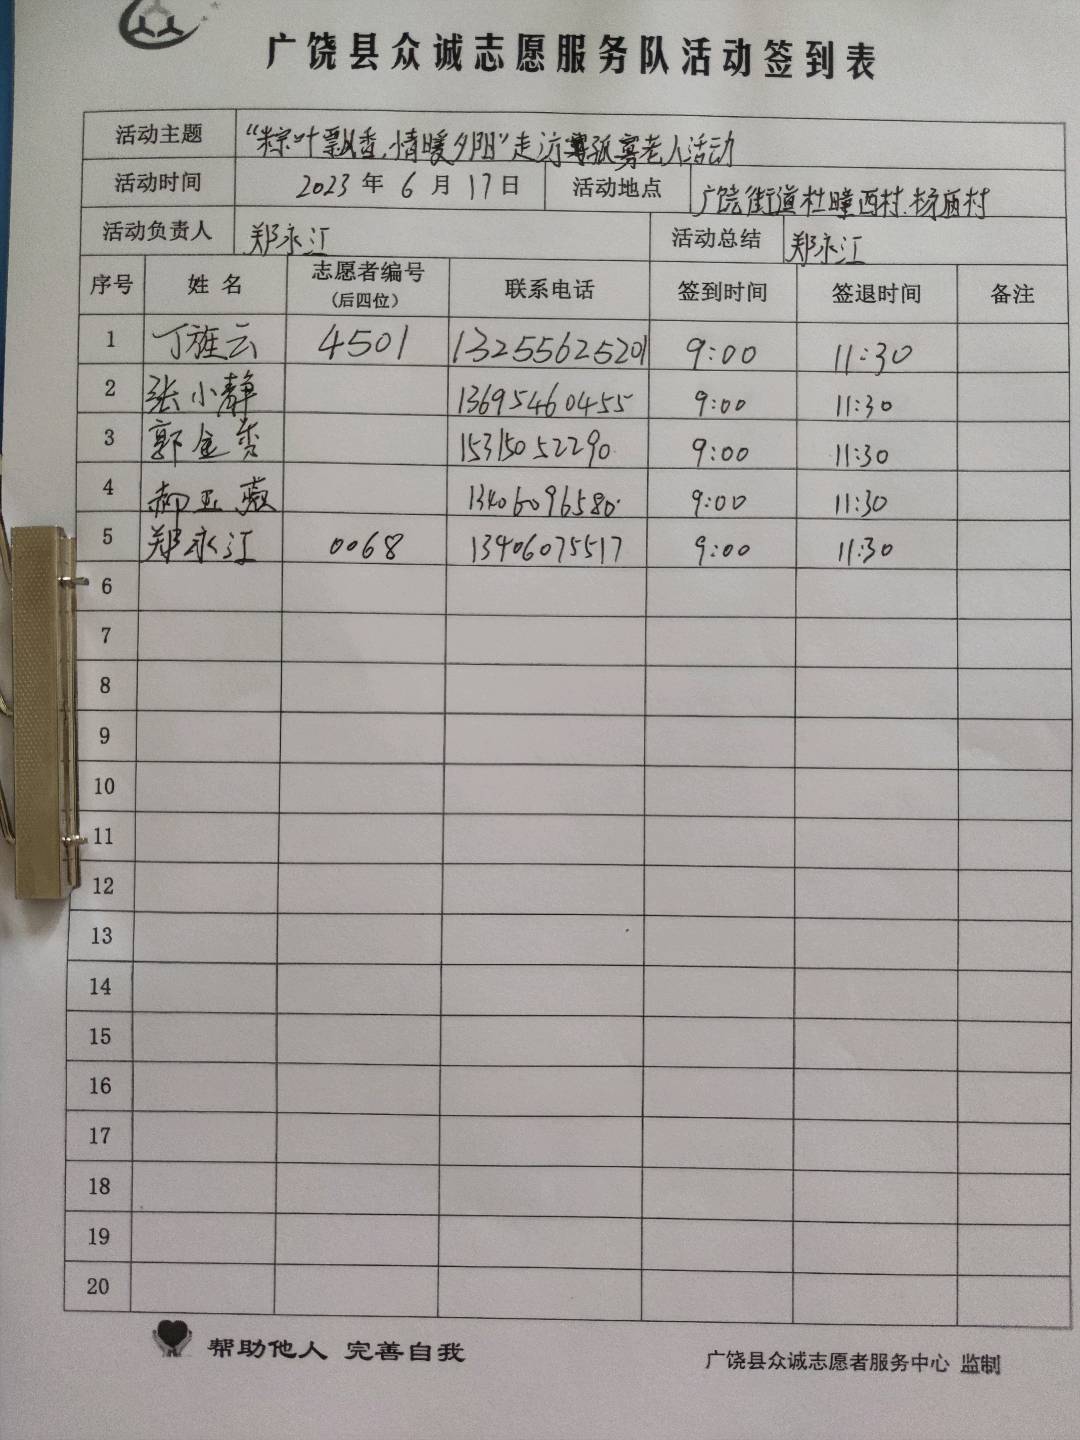 广饶县众诚志愿服务队活动签到表
活动主题 “粽叶飘香,情暖夕阳”走访孤寡老人活动
活动时间 2023年6月17日 活动地点 广饶街道杜疃西村.杨庙村
活动负责人 郑永江 活动总结 郑永江
序号 姓名 志愿者编号（后四位） 联系电话 签到时间 签退时间 备注
1 丁旌云 4501 13255625201 9:00 11:30
2 张小静 13695460455 9:00 11:30
3 郭金秀 15315052290 9:00 11:30
4 郝玉 13406096580 9:00 11:30
5 郑永江 0068 13406075517 9:00 11:30
6
7
8
9
10
11
12
13
14
15
16
17
18
19
20
帮助他人 完善自我
广饶县众诚志愿者服务中心 监制